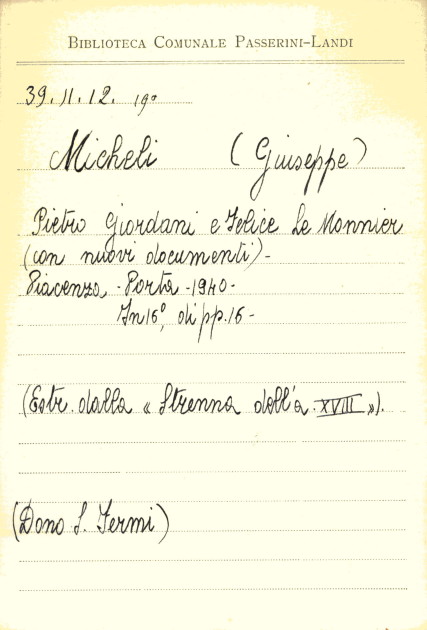 BIBLIOTECA COMUNALE PASSERINI-LANDI
39.II.12. 19°
Micheli (Giuseppe)
Pietro Giordani e Felice Le Monnier
(con nuovi documenti)-
Piacenza - Porta - 1940 -
In 16°, di pp. 16 -
(Estr. dalla « Strenna dell'a. XVIII »).
(Dono S. Fermi)